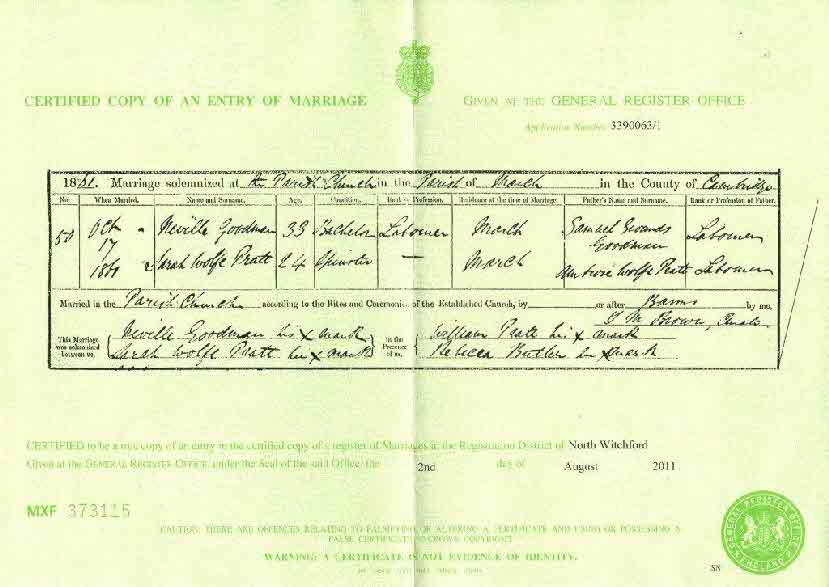 CERTIFIED COPY OF AN ENTRY OF MARRIAGE
GIVEN AT THE GENERAL REGISTER OFFICE
Application Number 3390063/1
1861. Marriage solemnized at the Parish Church in the Parish of March in the County of Cambridge
No. When Married. Name and Surname. Age. Condition. Rank or Profession. Residence at the time of Marriage. Father's Name and Surname. Rank or Profession of Father.
50 Oct 17 1861 Neville Goodman 33 Bachelor Labourer March Samuel Goodman Labourer
Sarah Wolfe Pratt 24 Spinster — March Wolfe Pratt Labourer
Married in the Parish Church according to the Rites and Ceremonies of the Established Church, by or after Banns by me,
Brown, Curate
This Marriage was solemnized between us, Neville Goodman his x mark
Sarah Wolfe Pratt her x mark
in the Presence of us, William Pratt his x mark
Rebecca Butler her x mark
CERTIFIED to be a true copy of an entry in the certified copy of a register of Marriages in the Registration District of North Witchford
Given at the GENERAL REGISTER OFFICE, under the Seal of the said Office, the 2nd day of August 2011
MXF 373115
CAUTION: THERE ARE OFFENCES RELATING TO FALSIFYING OR ALTERING A CERTIFICATE AND USING OR POSSESSING A
FALSE CERTIFICATE © CROWN COPYRIGHT
WARNING: A CERTIFICATE IS NOT EVIDENCE OF IDENTITY.
GENERAL REGISTER OFFICE ENGLAND